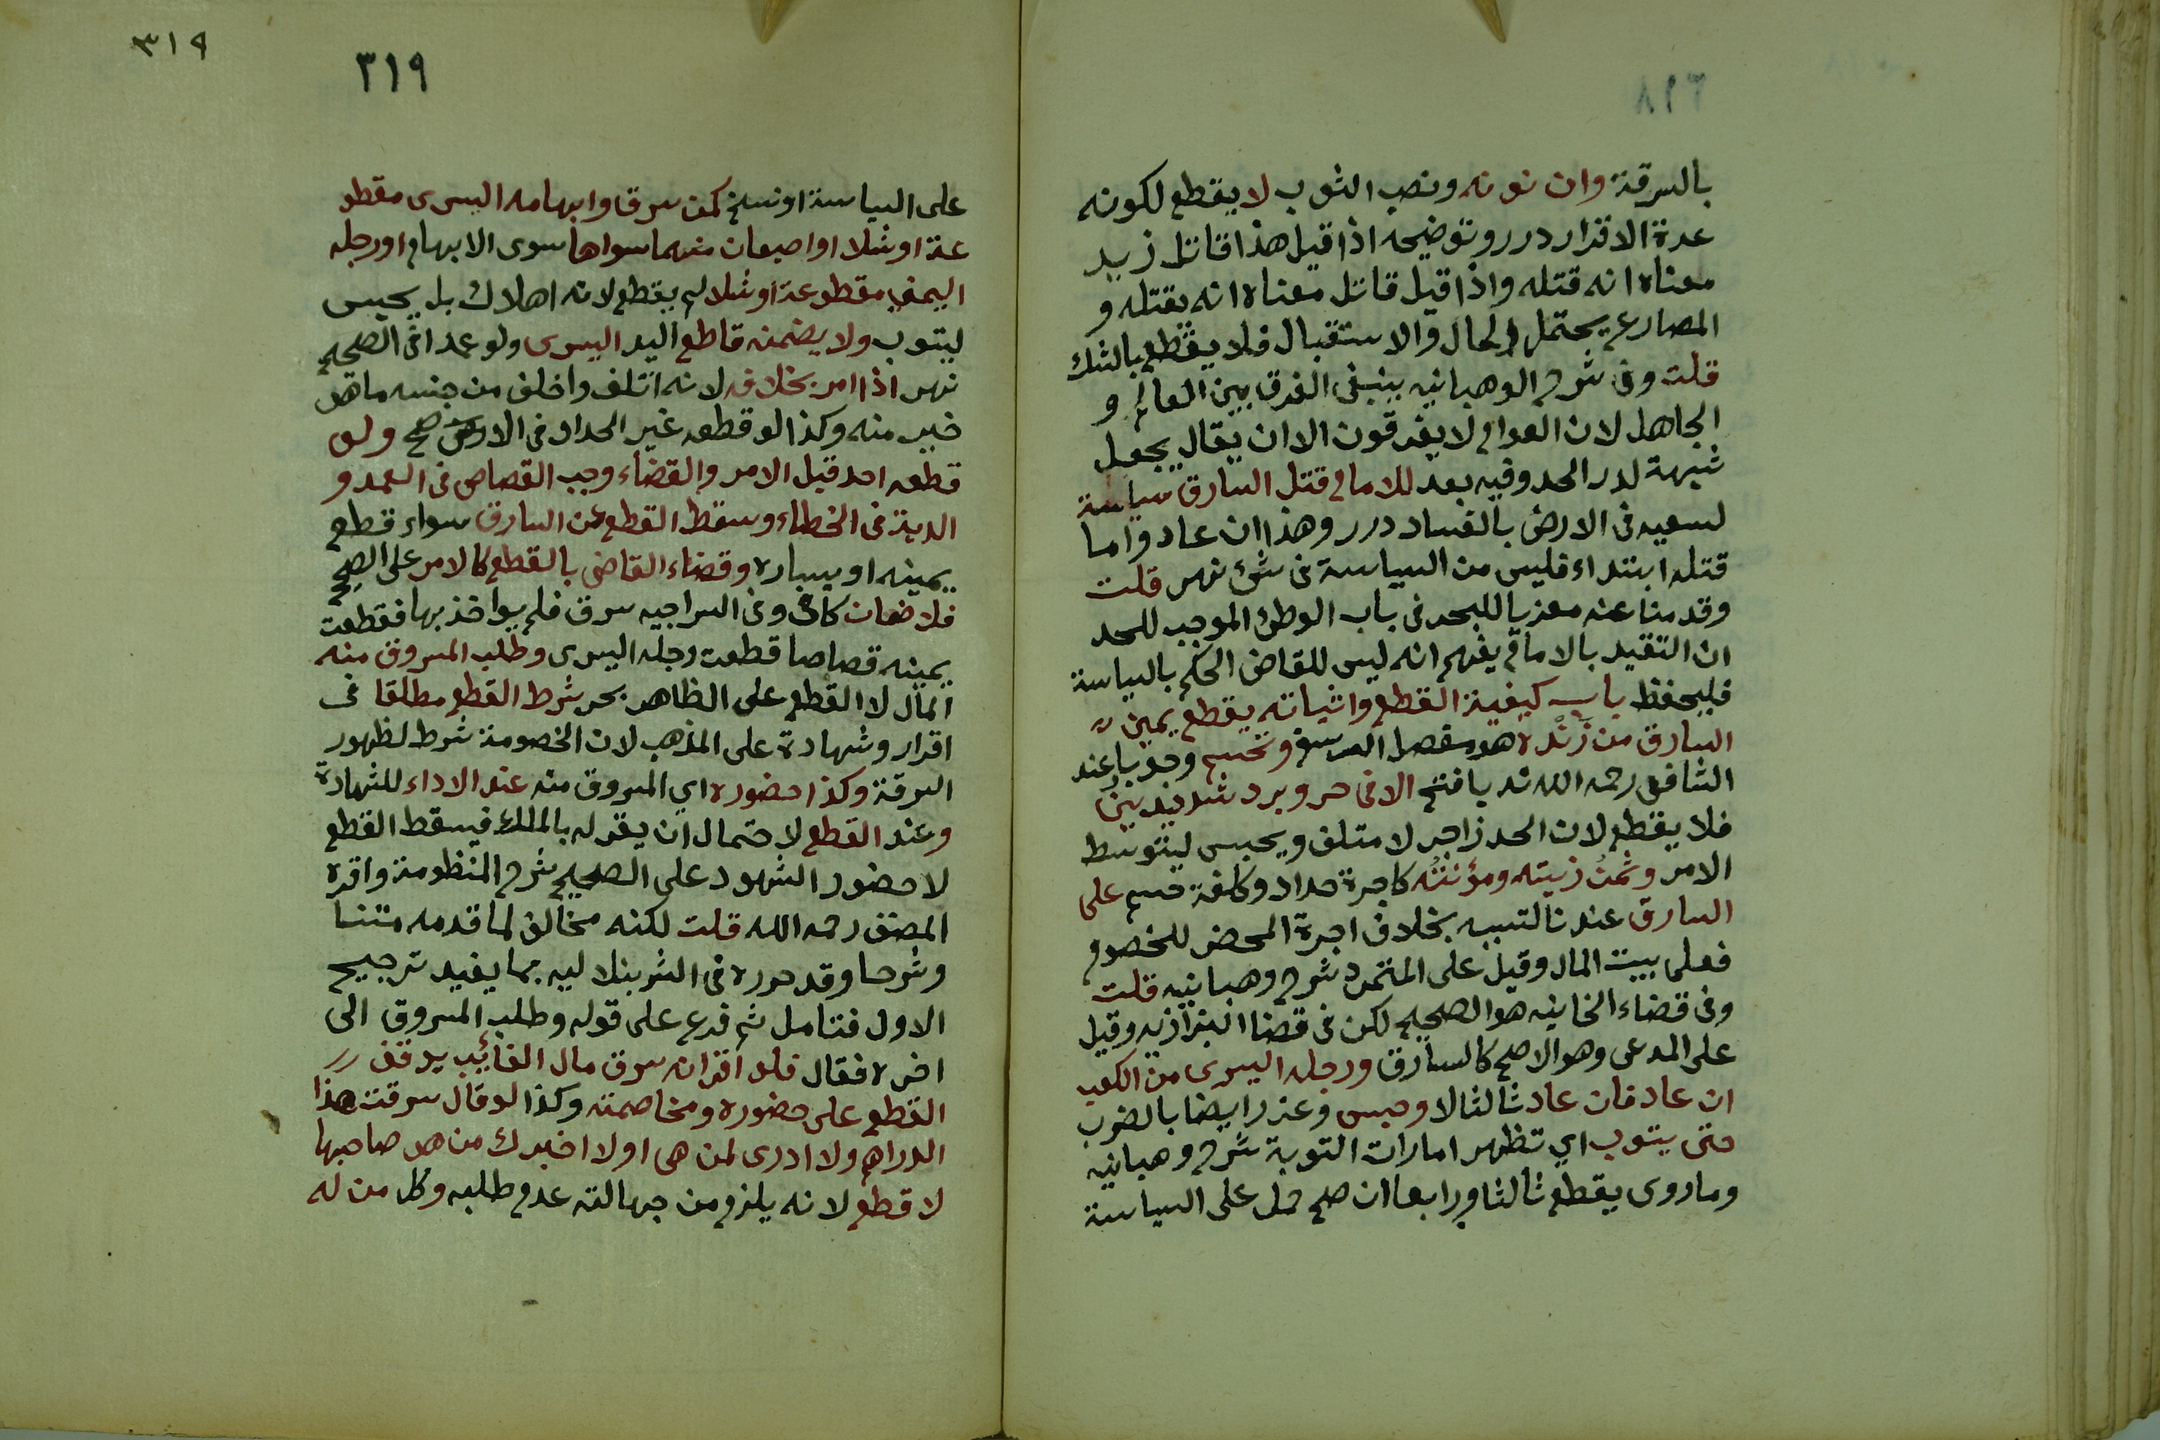 بالسرقة وان نونه ونصب الثوب لا يقطع لكونه
عدة الاقرار درر وتوضيحه اذا قيل هذا قاتل زيد
معناه انه قتله واذا قيل قاتل معناه انه يقتله و
المضارع يحتمل الحال والاستقبال فلا يقطع بالشك
قلت وفى شرح الوهبانيه ينبغى الفرق بين العالم و
الجاهل لان العوام لا يفرقون الا ان يقال يجعل
شبهة لدر الحد وفيه بعد للامام قتل السارق سياسة
لسعيه فى الارض بالفساد درر وهذا ان عاد واما
قتله ابتداء فليس من السياسة فى شئ نهر قلت
وقدمنا عنه معزيا للبحر فى باب الوطئ الموجب للحد
ان التقيد بالامام يفهم انه ليس للقاضى الحكم بالسياسة
فليحفظ باب كيفية القطع واثباته يقطع يمين
السارق من زنده هو مفصل الرسغ وتحسم وجوبا عند
الشافعى رحمه الله ندبا فتح الا فى حر وبرد شديدين
فلا يقطع لان الحد زاجر لا متلف ويحبس ليتوسط
الامر وثمن زيته ومؤنته كاجرة حداد وكلفة حسم على
السارق عندنا لتسببه بخلاف اجرة المحضر للخصوم
فعلى بيت المال وقيل على المتمرد شرح وهبانيه قلت
وفى قضاء الخانيه هو الصحيح لكن فى قضا البزازيه وقيل
على المدعى وهو الاصح كالسارق ورجله اليسرى من الكعب
ان عاد فان عاد ثالثا لا وحبس وعزر ايضا بالضرب
حتى يتوب اي تظهر امارات التوبة شرح وهبانيه
وما روى يقطع ثالثا ورابعا ان صح حمل على السياسة
٣١٩
٣١٩
على السياسة او نسخ كمن سرق وابهامه اليسرى مقطو
عة او شلا او اصبعان منهما سواها سوى الابهام او رجله
اليمنى مقطوعة او شلا لم يقطع لانه اهلاك بل يحبس
ليتوب ولا يضمنه قاطع اليد اليسرى ولو عمدا فى الصحيح
نهر اذا امر بخلافه لانه اتلف واخلف من جنسه ما هو
خير منه وكذا لو قطعه غير الحداد فى الاصح ولو
قطعه احد قبل الامر والقضاء وجب القصاص فى العمد و
الدية فى الخطاء وسقط القطع عن السارق سواء قطع
يمينه او يساره وقضاء القاضى بالقطع كالامر على الصحيح
فلا ضمان كافى وفى السراجيه سرق فلم يواخذ بها فقطعت
يمينه قصاصا قطعت رجله اليسرى وطلب المسروق منه
المال لا القطع على الظاهر بحر شرط القطع مطلقا فى
اقرار وشهادة على المذهب لان الخصومة شرط لظهور
السرقة وكذا حضوره اي المسروق منه عند الاداء للشهادة
وعند القطع لاحتمال ان يقر له بالملك فيسقط القطع
لا حضور الشهود على الصحيح شرح المنظومة واقره
المصنف رحمه الله قلت لكنه مخالف لما قدمه متنا
وشرحا وقد حرره فى الشرنبلاليه بما يفيد ترجيح
الاول فتامل ثم فرع على قوله وطلب المسروق الى
اخره فقال فلو اقر انه سرق مال الغائب يوقف
القطع على حضوره ومخاصمته وكذا لو قال سرقت هذا
الدراهم ولا ادرى لمن هى او لا اخبرك من هو صاحبها
لا قطع لانه يلزم من جهالته عدم طلبه وكل من له